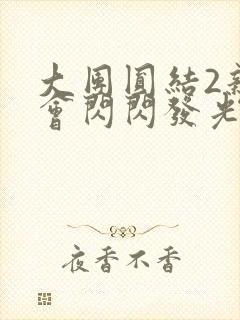 大團圓結2新
會閃閃發光
夜香不香